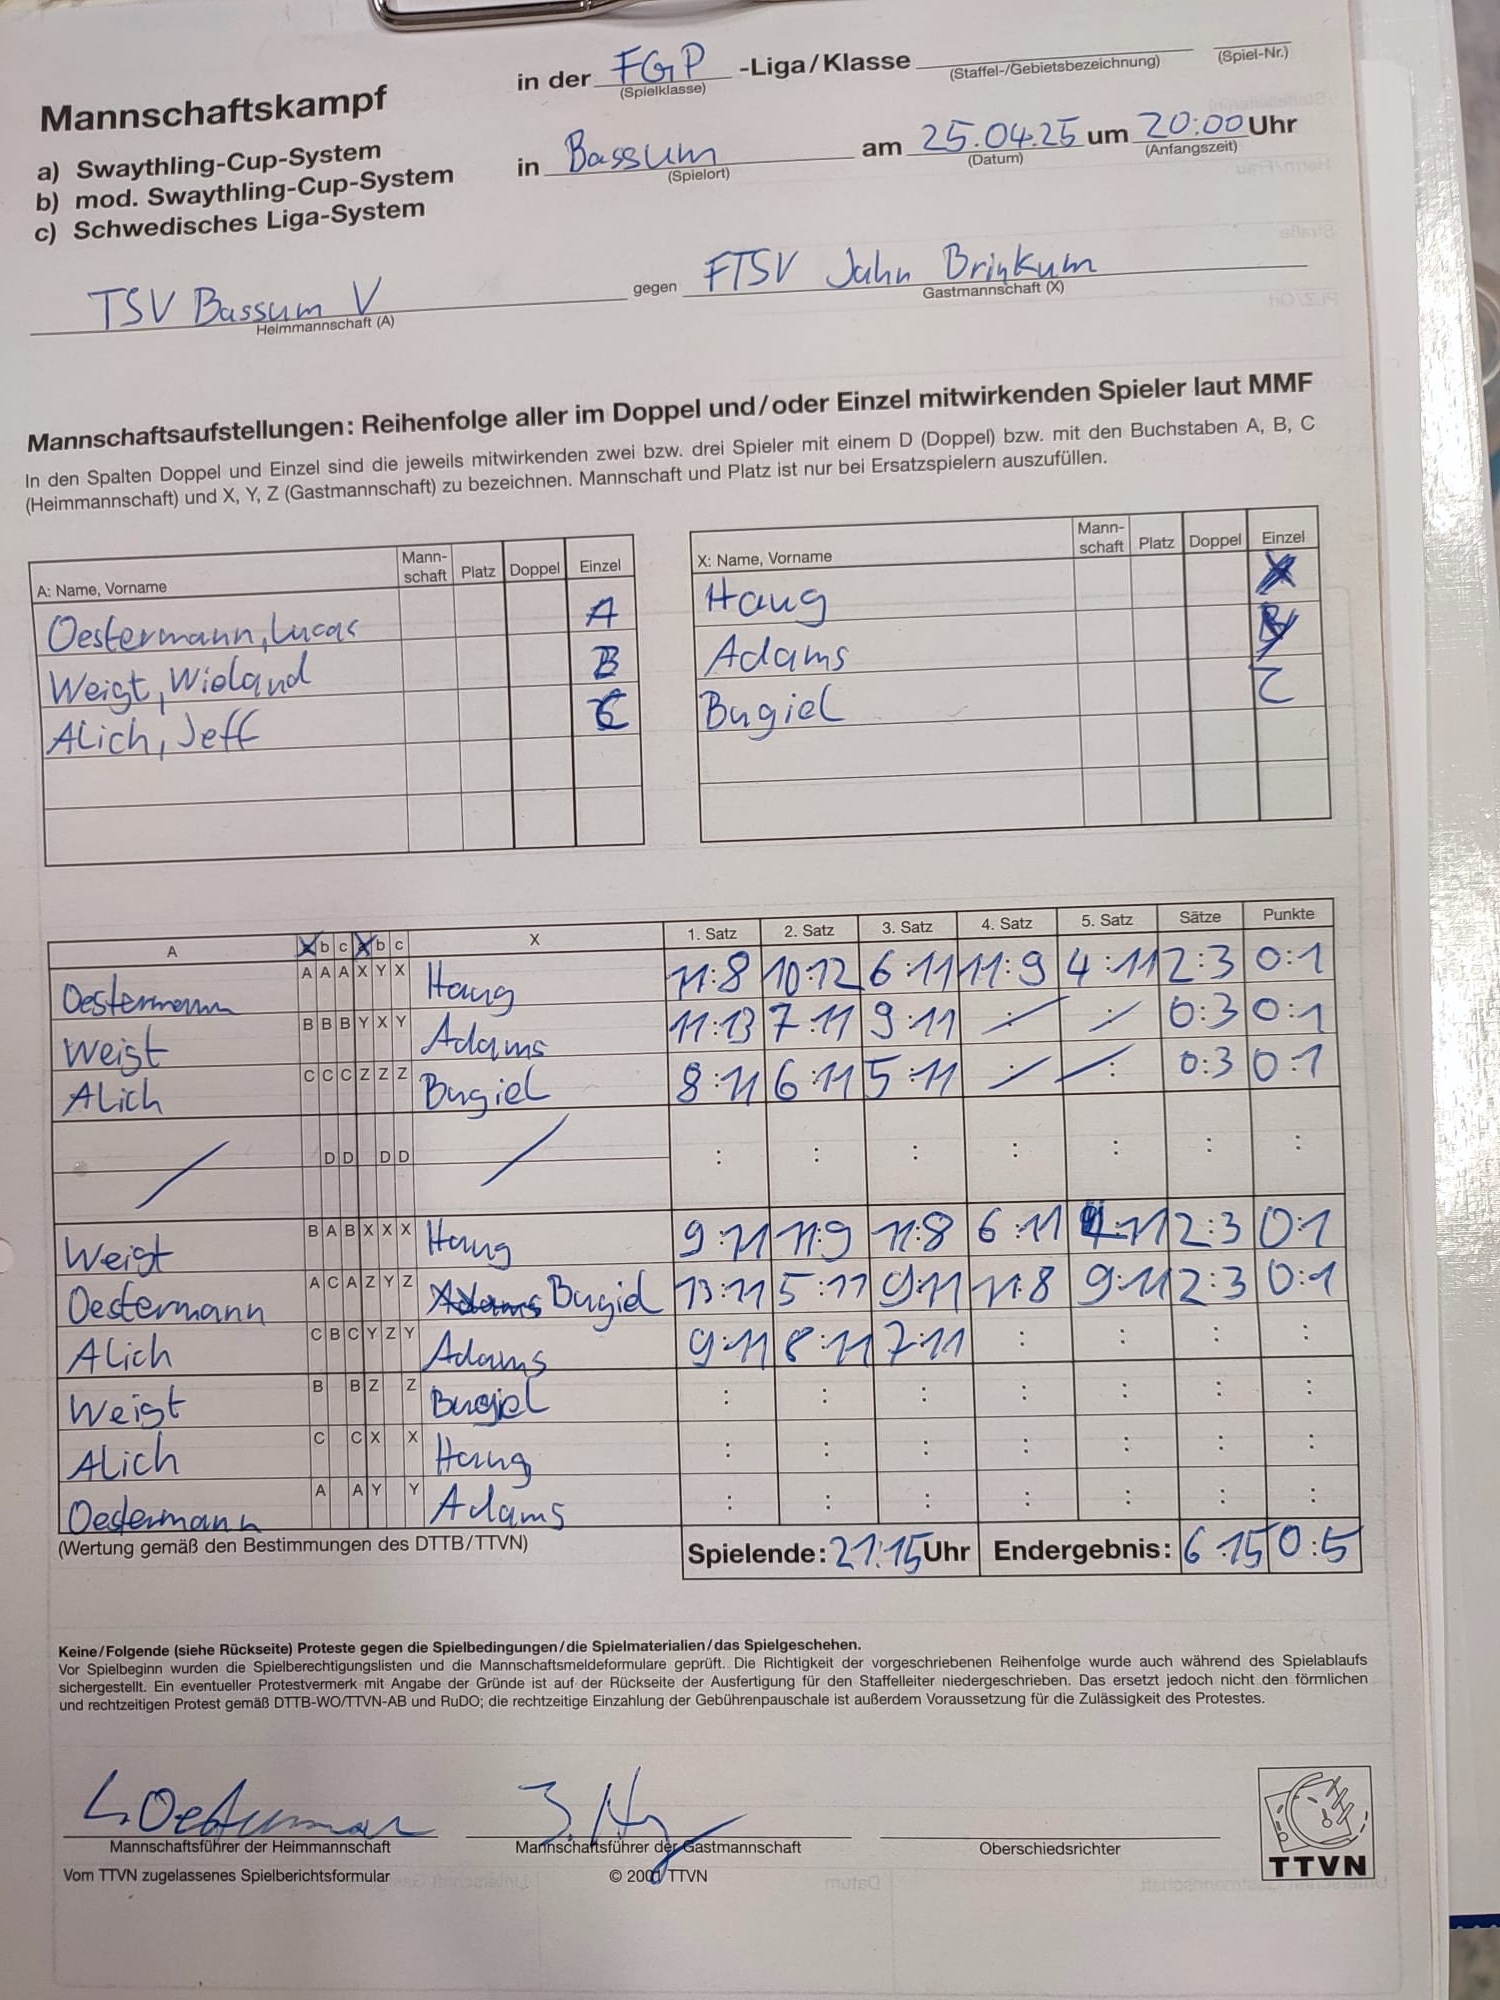 in der FGP -Liga/Klasse
(Spielklasse) (Staffel-/Gebietsbezeichnung) (Spiel-Nr.)
Mannschaftskampf
a) Swaythling-Cup-System
b) mod. Swaythling-Cup-System
c) Schwedisches Liga-System
in Bassum am 25.04.25 um 20:00 Uhr
(Spielort) (Datum) (Anfangszeit)
TSV Bassum V gegen FTSV Jahn Brinkum
Heimmannschaft (A) Gastmannschaft (X)
Mannschaftsaufstellungen: Reihenfolge aller im Doppel und/oder Einzel mitwirkenden Spieler laut MMF
In den Spalten Doppel und Einzel sind die jeweils mitwirkenden zwei bzw. drei Spieler mit einem D (Doppel) bzw. mit den Buchstaben A, B, C
(Heimmannschaft) und X, Y, Z (Gastmannschaft) zu bezeichnen. Mannschaft und Platz ist nur bei Ersatzspielern auszufüllen.
A: Name, Vorname Mann-schaft Platz Doppel Einzel
Oestermann, Lucas A
Weigt, Wieland B
Alich, Jeff C
X: Name, Vorname Mann-schaft Platz Doppel Einzel
Haug X
Adams Y
Bugiel Z
A a b c a b c X 1. Satz 2. Satz 3. Satz 4. Satz 5. Satz Sätze Punkte
Oestermann A A A X Y X Haug 11:8 10:12 6:11 11:9 4:11 2:3 0:1
Weigt B B B Y X Y Adams 11:13 7:11 9:11 : : 0:3 0:1
Alich C C C Z Z Z Bugiel 8:11 6:11 5:11 : : 0:3 0:1
/ D D D D / : : : : : : :
Weigt B A B X X X Haug 9:11 11:9 11:8 6:11 :11 2:3 0:1
Oestermann A C A Z Y Z Adams Bugiel 13:11 5:11 9:11 11:8 9:11 2:3 0:1
Alich C B C Y Z Y Adams 9:11 8:11 7:11 : : : :
Weigt B B Z Z Bugiel : : : : : : :
Alich C C X X Haug : : : : : : :
Oestermann A A Y Y Adams : : : : : : :
(Wertung gemäß den Bestimmungen des DTTB/TTVN) Spielende: 21:15 Uhr Endergebnis: 6:15 0:5
Keine/Folgende (siehe Rückseite) Proteste gegen die Spielbedingungen/die Spielmaterialien/das Spielgeschehen.
Vor Spielbeginn wurden die Spielberechtigungslisten und die Mannschaftsmeldeformulare geprüft. Die Richtigkeit der vorgeschriebenen Reihenfolge wurde auch während des Spielablaufs
sichergestellt. Ein eventueller Protestvermerk mit Angabe der Gründe ist auf der Rückseite der Ausfertigung für den Staffelleiter niedergeschrieben. Das ersetzt jedoch nicht den förmlichen
und rechtzeitigen Protest gemäß DTTB-WO/TTVN-AB und RuDO; die rechtzeitige Einzahlung der Gebührenpauschale ist außerdem Voraussetzung für die Zulässigkeit des Protestes.
L. Oestermann
Mannschaftsführer der Heimmannschaft Mannschaftsführer der Gastmannschaft Oberschiedsrichter
TTVN
Vom TTVN zugelassenes Spielberichtsformular © 2001 TTVN